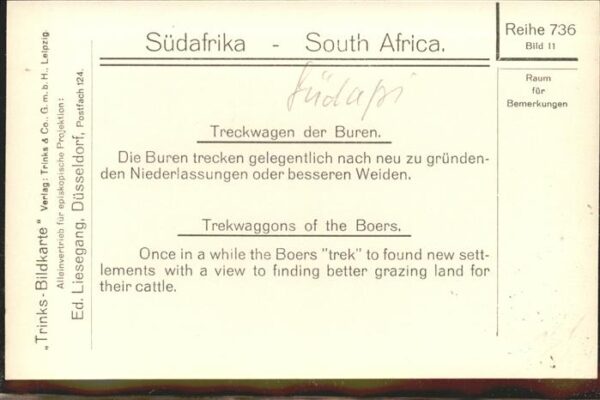 Südafrika - South Africa.
Reihe 736
Bild 11
Raum
für
Bemerkungen
Treckwagen der Buren.
Die Buren trecken gelegentlich nach neu zu gründen-
den Niederlassungen oder besseren Weiden.
Trekwaggons of the Boers.
Once in a while the Boers "trek" to found new sett-
lements with a view to finding better grazing land for
their cattle.
„Trinks-Bildkarte“ Verlag: Trinks & Co., G. m. b. H., Leipzig.
Alleinvertrieb für episkopische Projektion:
Ed. Liesegang, Düsseldorf, Postfach 124.